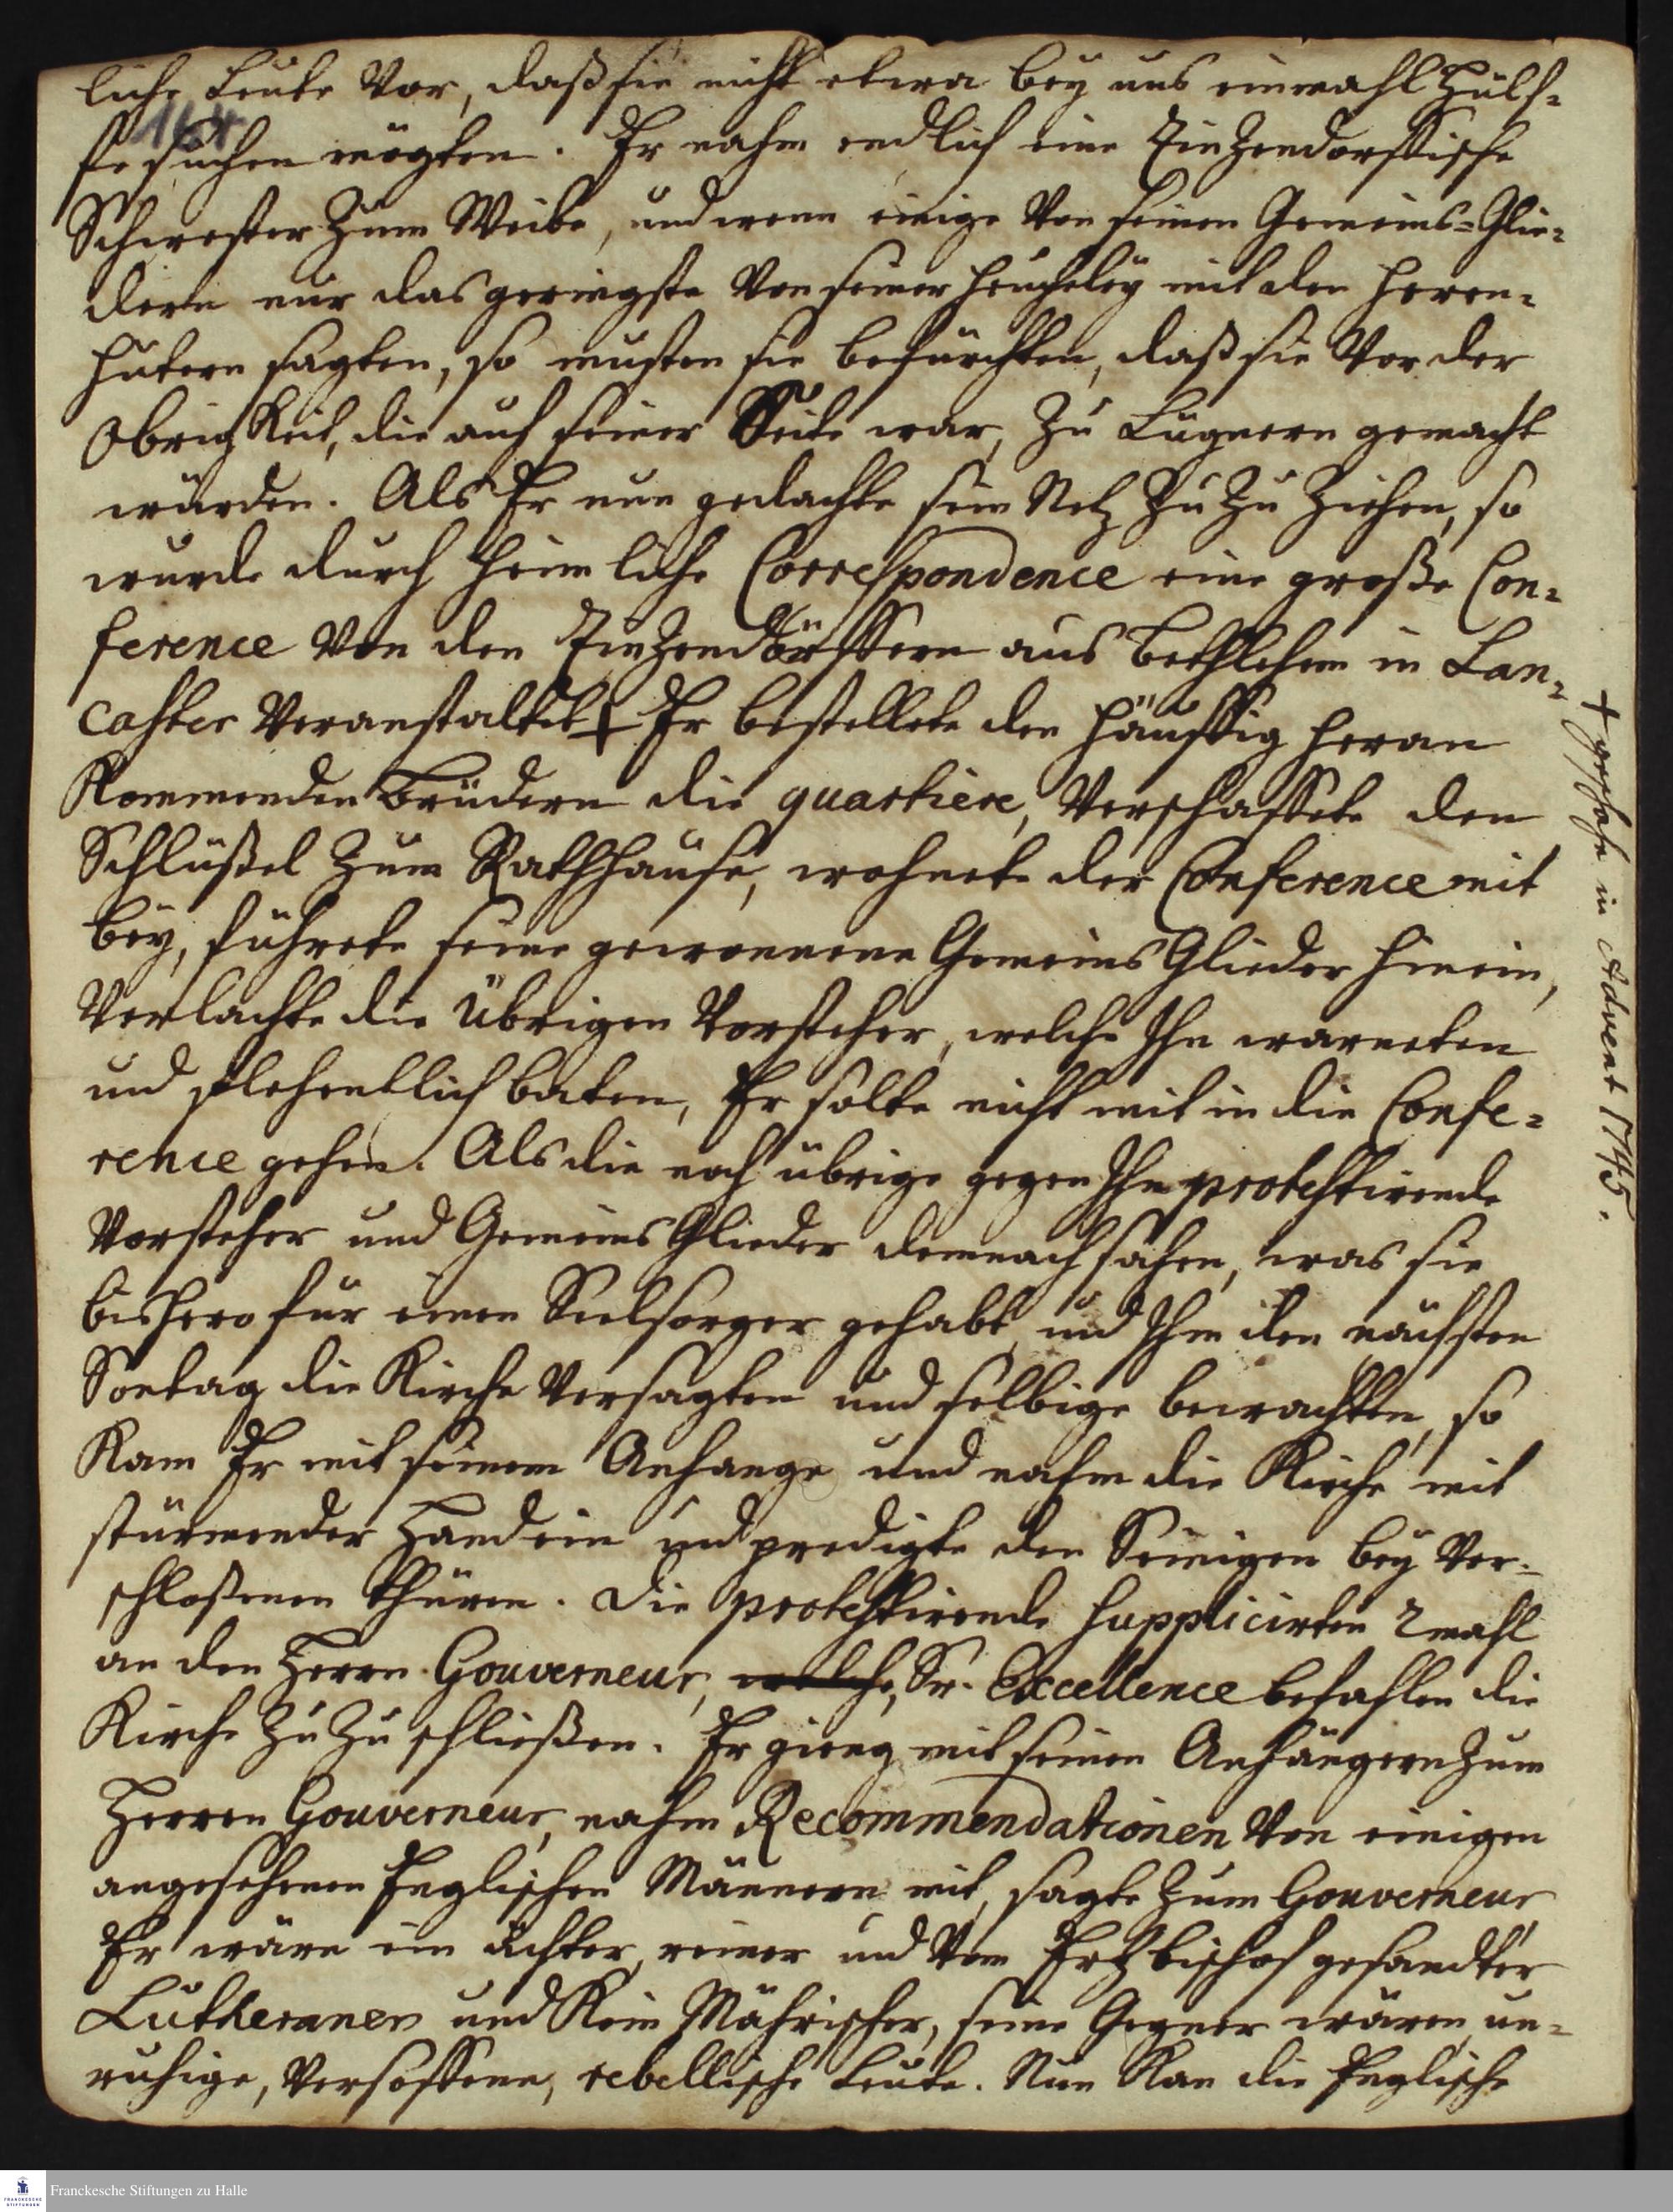 liche Leute vor, daß sie nicht etwa bey uns einmahl Hülf-
164
fe suchen mögten. Er nahm endlich eine Zinzendorffische
Schwester zum Weibe, und wenn einige von seinen Gemeins-Glie-
dern nur das geringste von seiner Heucheley mit den Herrn-
hutern sagten, so musten sie befürchten, daß sie vor der
Obrigkeit, die auf seiner Seite war, zu Lügnern gemacht
würden. Als Er nun gedachte sein Netz zu zu ziehen, so
wurde durch heimliche Correspondence eine große Con-
ference von den Zinzendörffern aus Bethlehem in Lan-
caster veranstaltet + Er bestellete den häuffig heran
kommenden Brüdern die quartiere, verschaffete den
Schlüßel zum Rathhause, wohnete der Conference mit
bey, führete seine gewonnene Gemeins Glieder hinein,
verlachte die übrigen Vorsteher, welche Ihn warneten
und flehentlich baten, Er solte nicht mit in die Confe-
rence gehen. Als die noch übrige gegen Ihn protestirende
Vorsteher und Gemeins Glieder demnach sahen, was sie
bishero für einen Seelsorger gehabt, und Ihm den nächsten
Sontag die Kirche versagten und selbige bewachten, so
kam Er mit seinem Anhange und nahm die Kirche mit
stürmender Hand ein und predigte den Seinigen bey ver-
schloßenen thüren. Die protestirende supplicirten 2 mahl
an den Herrn Gouverneur, welche, Sr. Excellence befahlen die
Kirche zu zu schließen. Er gieng mit seinen Anhängern zum
Herren Gouverneur, nahm Recommendationen von einigen
angesehenen Englischen Männern mit, sagte zum Gouverneur
Er wäre ein ächter, reiner und vom Ertzbischof gesandter
Lutheraner und kein Mährischer, seine Gegner wären un-
ruhige, versoffene, rebellische Leute. Nun kan die Englische
+ geschahe in Advent 1745.
FRANCKESCHE STIFTUNGEN
Franckesche Stiftungen zu Halle